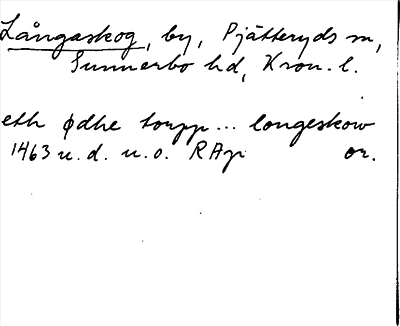 Långaskog, by, Pjätteryds sn,
Sunnerbo hd, Kron. l.
eth ødhe torpp... longeskow
1463 u. d. u. o. RAp or.